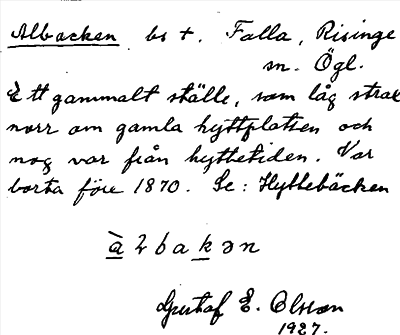 Albacken bs t. Falla, Risinge
sn. Ögl.
Ett gammalt ställe, som låg strax
norr om gamla hyttplatsen och
nog var från hyttetiden. Var
borta före 1870. Se: Hyttebäcken
Gustaf E. Olsson
1927.